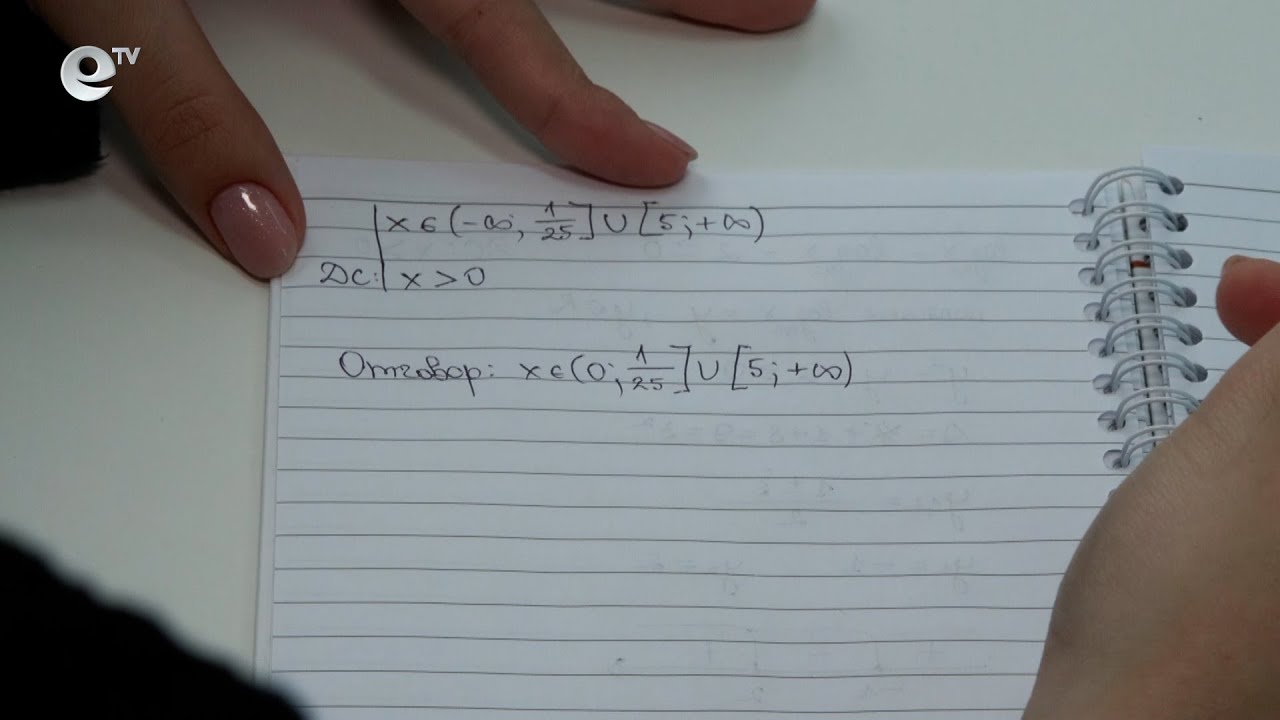 e TV
x ∈ (-∞; 1/25] ∪ [5; +∞)
ДС: x > 0
Отговор: x ∈ (0; 1/25] ∪ [5; +∞)